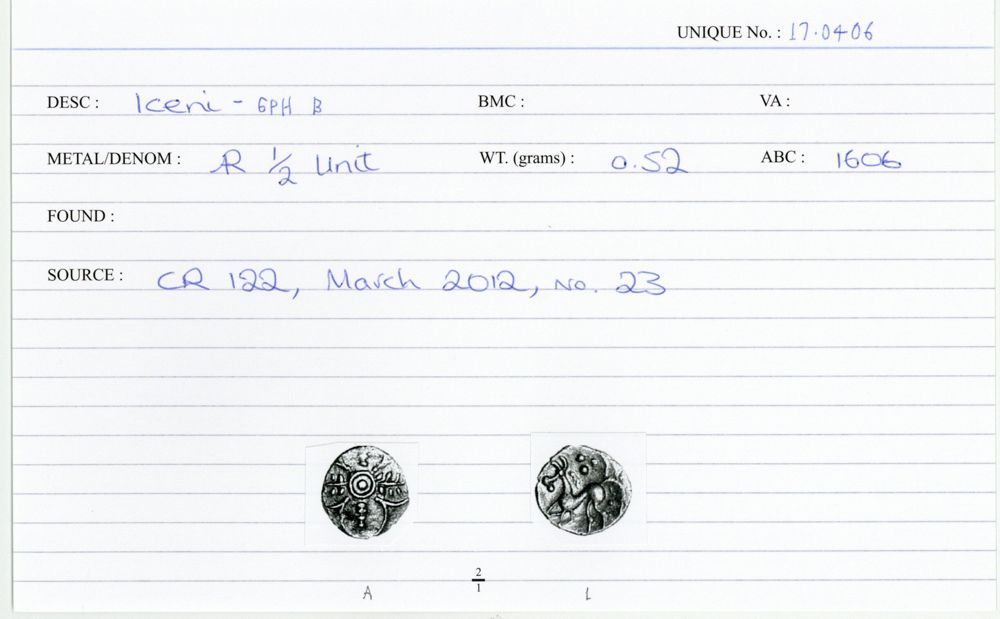 UNIQUE No. : 17.0406
DESC : Iceni - GPH B BMC : VA :
METAL/DENOM : AR 1/2 Unit WT. (grams) : 0.52 ABC : 1606
FOUND :
SOURCE : CR 122, March 2012, No. 23
2/1
A 1